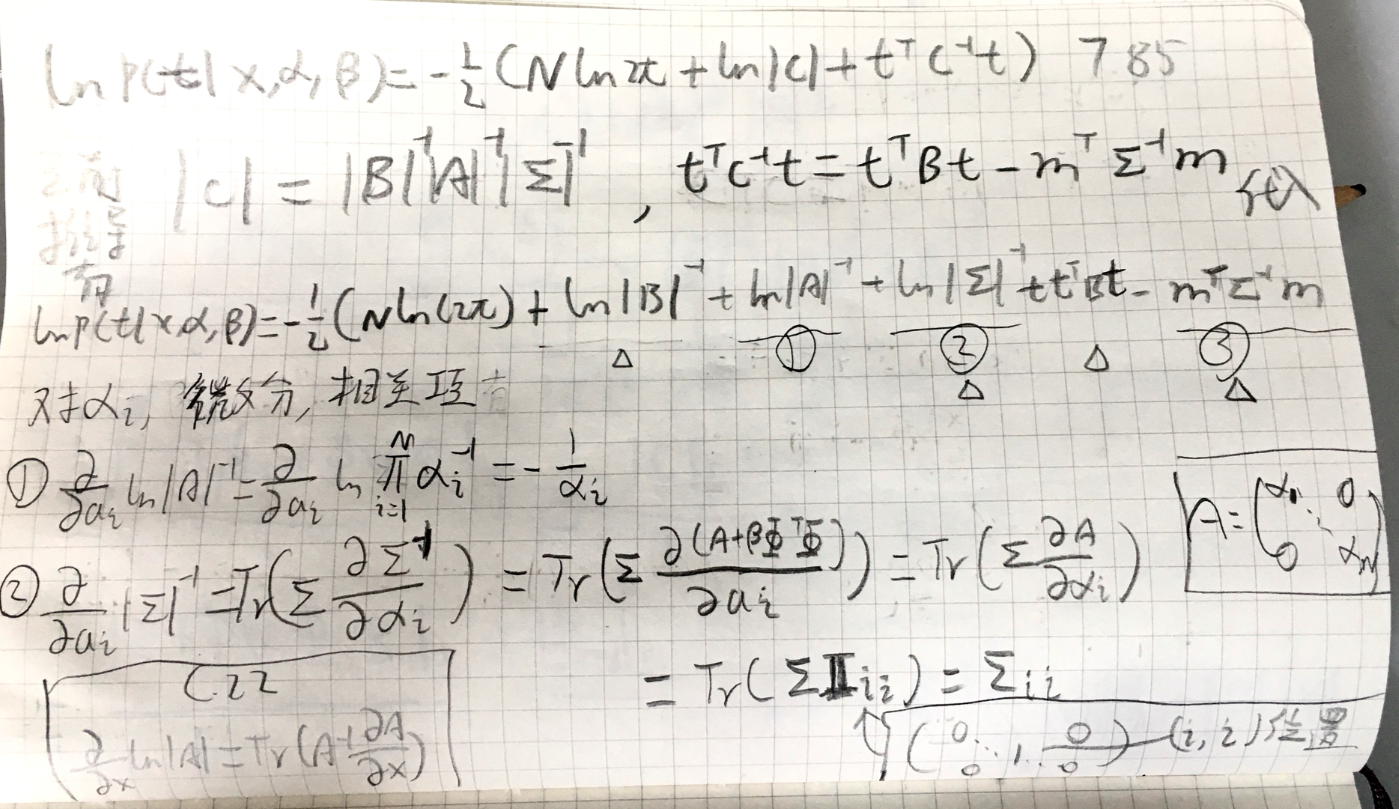 ln p(t|x,α,β)=-1/2(N ln2π+ln|C|+tᵀC⁻¹t) 7.85
|C|=|B|⁻¹|A|⁻¹|Σ|⁻¹, tᵀC⁻¹t=tᵀBt-mᵀΣ⁻¹m 代入
lnp(t|x,α,β)=-1/2(Nln(2π)+ln|B|⁻¹+ln|A|⁻¹+ln|Σ|⁻¹+tᵀBt-mᵀΣ⁻¹m
△ ① ② △ ③
△ △
对αᵢ, 微分, 相关项
① ∂/∂aᵢ ln|A|⁻¹=∂/∂aᵢ ln ∏ᵢ₌₁ᴹ αᵢ⁻¹=-1/αᵢ
A=(α₁ ⋱ 0 0 αₘ)
② ∂/∂aᵢ|Σ|⁻¹=Tr(Σ ∂Σ⁻¹/∂αᵢ)=Tr(Σ ∂(A+βΦᵀΦ)/∂aᵢ)=Tr(Σ ∂A/∂αᵢ)
=Tr(ΣIᵢᵢ)=Σᵢᵢ
C22
∂/∂x ln|A|=Tr(A⁻¹ ∂A/∂x)
(0 ⋱ 1 0 0 0) (i,i)位置